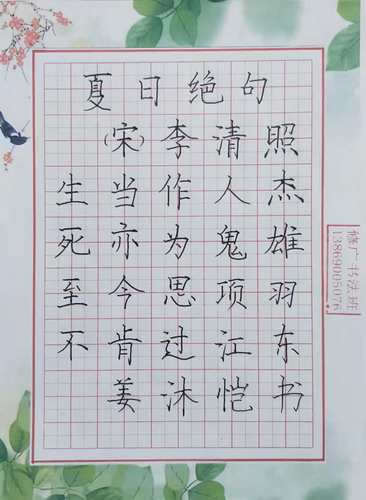 夏日绝句
（宋）李清照
生当作人杰
死亦为鬼雄
至今思项羽
不肯过江东
姜沐恺书
修广书法班
13869005076